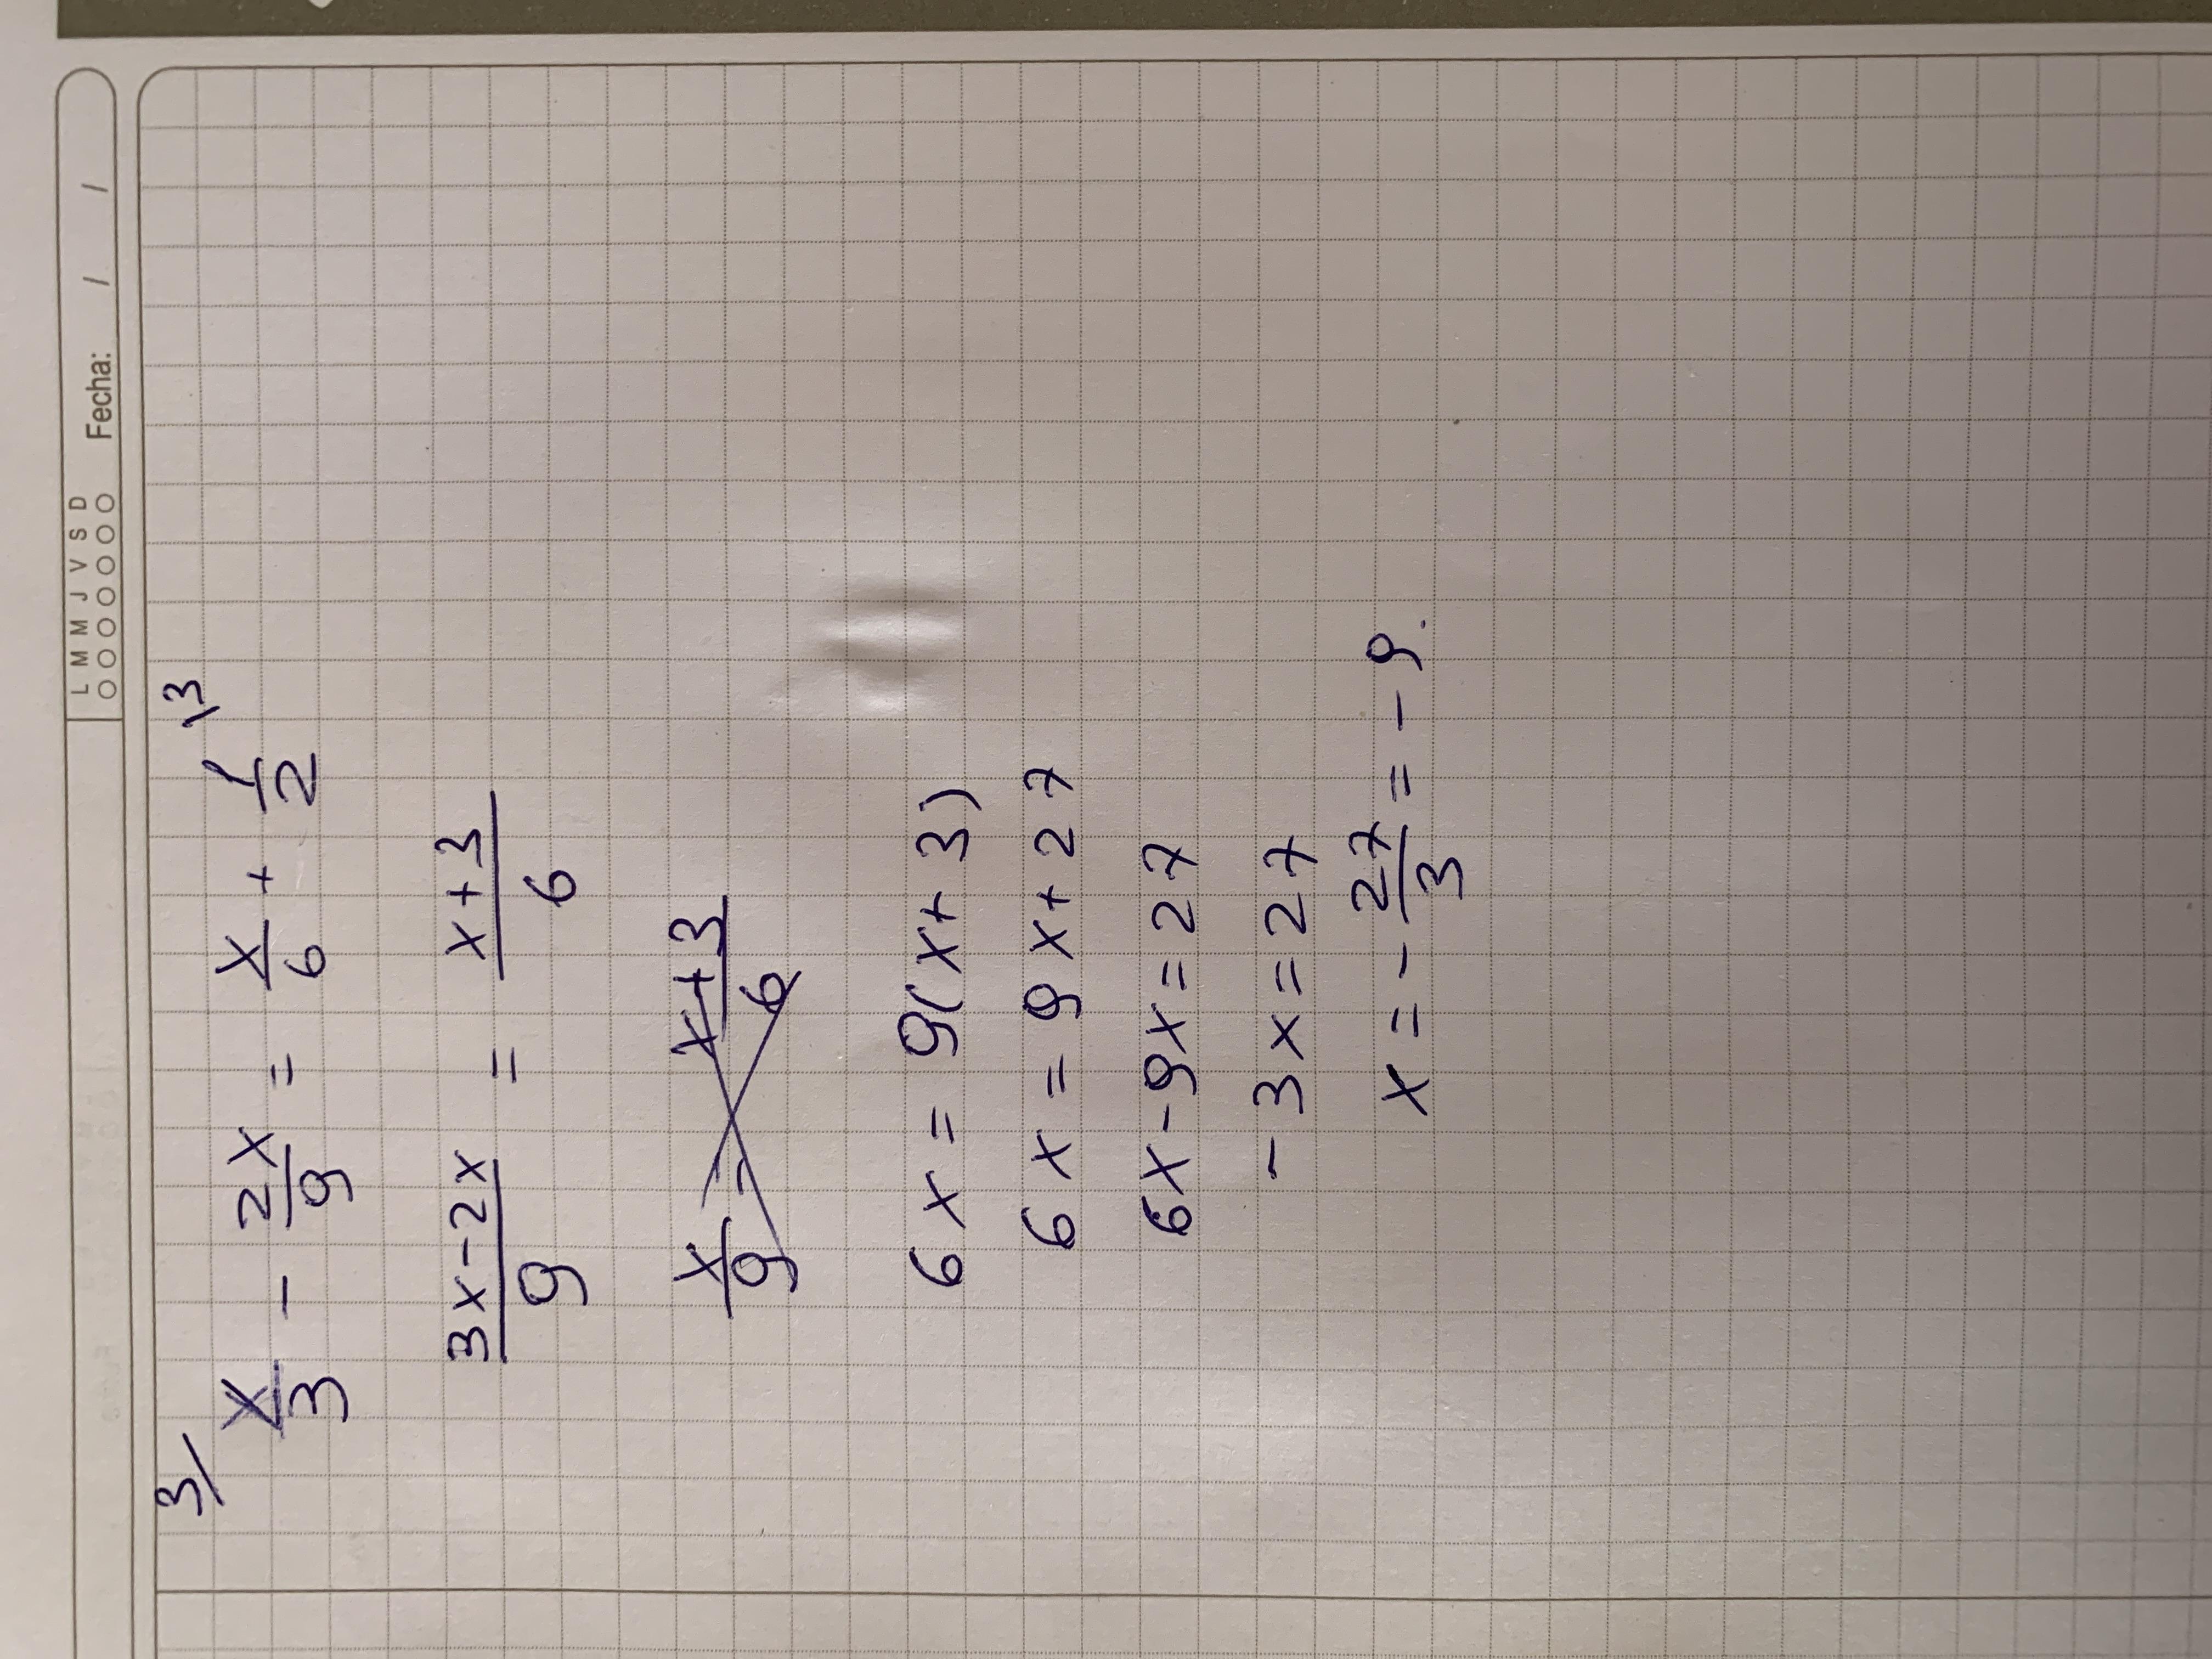 L M M J V S D Fecha: / /
3/ \3
x/3 - 2x/9 = x/6 + 1/2
(3x-2x)/9 = (x+3)/6
x/9 (x+3)/6
6x = 9(x+3)
6x = 9x+27
6x-9x=27
-3x=27
x=-27/3=-9.